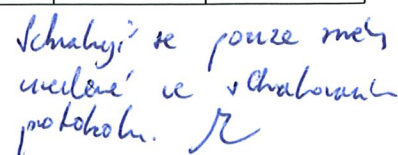 Schvalují se pouze změny
uvedené ve schvalovacím
protokolu.